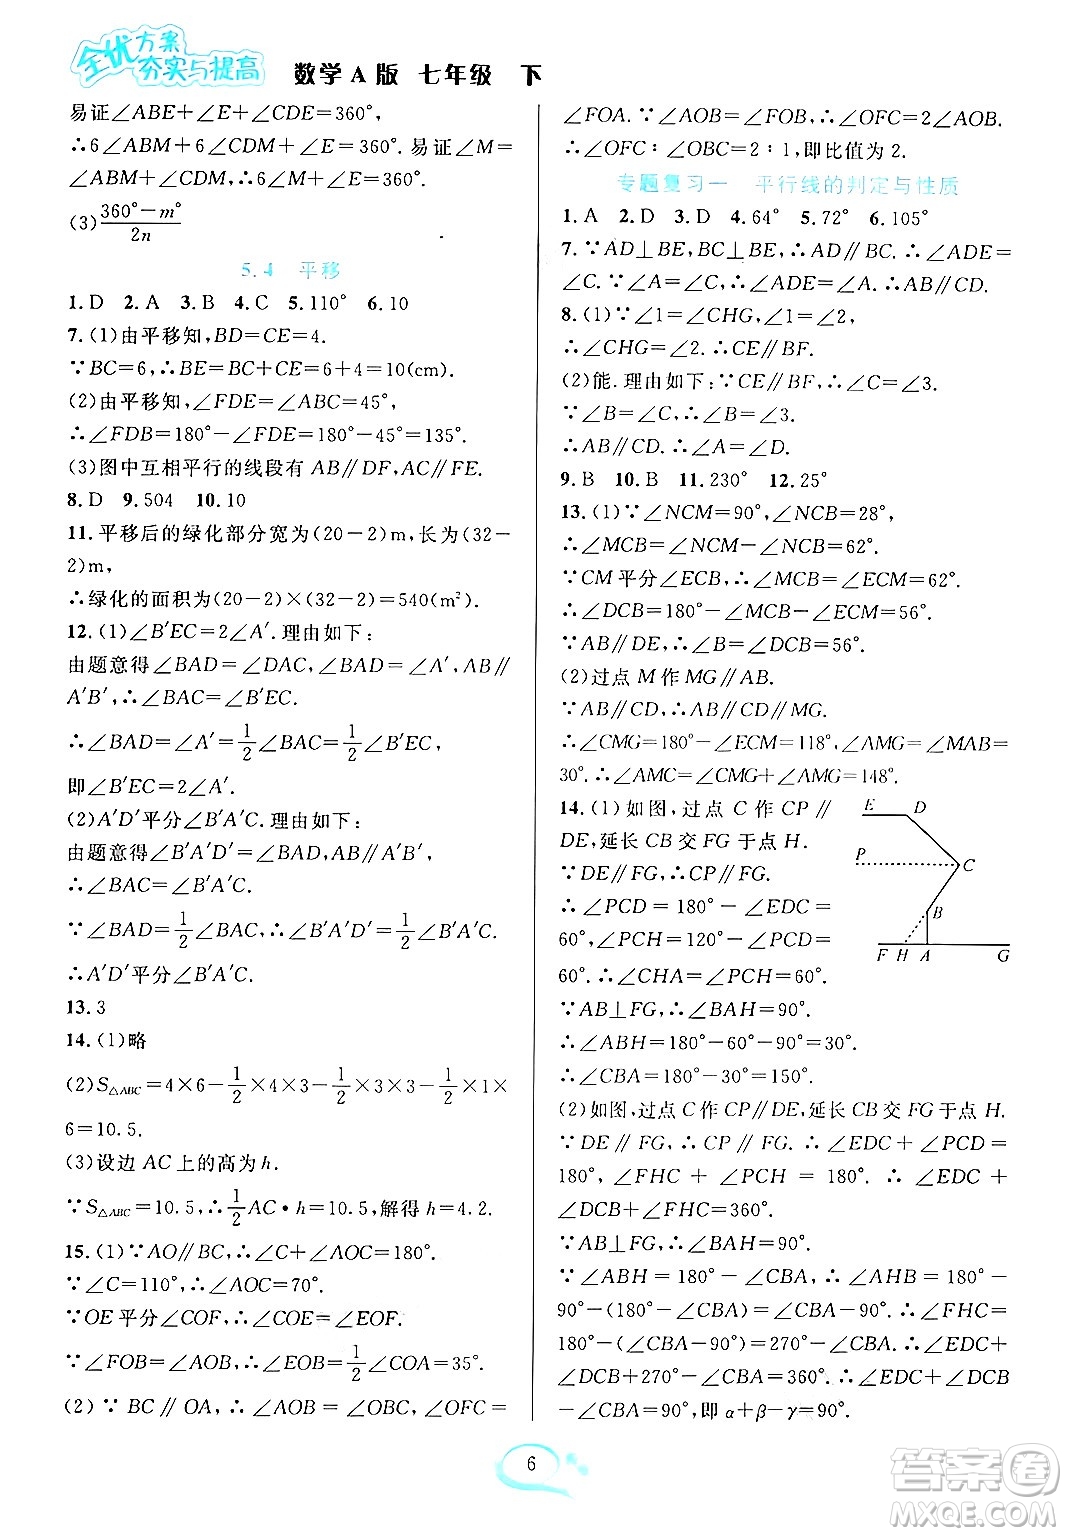 全优方案
夯实与提高
数学A版 七年级 下
易证∠ABE+∠E+∠CDE=360°,
∴6∠ABM+6∠CDM+∠E=360°.易证∠M=
∠ABM+∠CDM,∴6∠M+∠E=360°.
(3)$\frac{360°-m°}{2n}$
5.4 平移
1.D 2.A 3.B 4.C 5.110° 6.10
7.(1)由平移知,BD=CE=4.
∵BC=6,∴BE=BC+CE=6+4=10(cm).
(2)由平移知,∠FDE=∠ABC=45°,
∴∠FDB=180°-∠FDE=180°-45°=135°.
(3)图中互相平行的线段有AB∥DF,AC∥FE.
8.D 9.504 10.10
11.平移后的绿化部分宽为(20-2)m,长为(32-
2)m,
∴绿化的面积为(20-2)×(32-2)=540(m²).
12.(1)∠B′EC=2∠A′.理由如下:
由题意得∠BAD=∠DAC,∠BAD=∠A′,AB∥
A′B′,∴∠BAC=∠B′EC.
∴∠BAD=∠A′=$\frac{1}{2}$∠BAC=$\frac{1}{2}$∠B′EC,
即∠B′EC=2∠A′.
(2)A′D′平分∠B′A′C.理由如下:
由题意得∠B′A′D′=∠BAD,AB∥A′B′,
∴∠BAC=∠B′A′C.
∵∠BAD=$\frac{1}{2}$∠BAC,∴∠B′A′D′=$\frac{1}{2}$∠B′A′C.
∴A′D′平分∠B′A′C.
13.3
14.(1)略
(2)S△ABC=4×6-$\frac{1}{2}$×4×3-$\frac{1}{2}$×3×3-$\frac{1}{2}$×1×
6=10.5.
(3)设边AC上的高为h.
∵S△ABC=10.5,∴$\frac{1}{2}$AC•h=10.5,解得h=4.2.
15.(1)∵AO∥BC,∴∠C+∠AOC=180°.
∵∠C=110°,∴∠AOC=70°.
∵OE平分∠COF,∴∠COE=∠EOF.
∵∠FOB=∠AOB,∴∠EOB=$\frac{1}{2}$∠COA=35°.
(2)∵BC∥OA,∴∠AOB=∠OBC,∠OFC=
∠FOA.∵∠AOB=∠FOB,∴∠OFC=2∠AOB.
∴∠OFC∶∠OBC=2∶1,即比值为2.
专题复习一 平行线的判定与性质
1.A 2.D 3.D 4.64° 5.72° 6.105°
7.∵AD⊥BE,BC⊥BE,∴AD∥BC.∴∠ADE=
∠C.∵∠A=∠C,∴∠ADE=∠A.∴AB∥CD.
8.(1)∵∠1=∠CHG,∠1=∠2,
∴∠CHG=∠2.∴CE∥BF.
(2)能.理由如下:∵CE∥BF,∴∠C=∠3.
∵∠B=∠C,∴∠B=∠3.
∴AB∥CD.∴∠A=∠D.
9.B 10.B 11.230° 12.25°
13.(1)∵∠NCM=90°,∠NCB=28°,
∴∠MCB=∠NCM-∠NCB=62°.
∵CM平分∠ECB,∴∠MCB=∠ECM=62°.
∴∠DCB=180°-∠MCB-∠ECM=56°.
∵AB∥DE,∴∠B=∠DCB=56°.
(2)过点M作MG∥AB.
∵AB∥CD,∴AB∥CD∥MG.
∴∠CMG=180°-∠ECM=118°,∠AMG=∠MAB=
30°.∴∠AMC=∠CMG+∠AMG=148°.
14.(1)如图,过点C作CP∥
DE,延长CB交FG于点H.
∵DE∥FG,∴CP∥FG.
∴∠PCD=180°-∠EDC=
60°,∠PCH=120°-∠PCD=
60°.∴∠CHA=∠PCH=60°.
∵AB⊥FG,∴∠BAH=90°.
∴∠ABH=180°-60°-90°=30°.
∴∠CBA=180°-30°=150°.
(2)如图,过点C作CP∥DE,延长CB交FG于点H.
∵DE∥FG,∴CP∥FG.∴∠EDC+∠PCD=
180°,∠FHC+∠PCH=180°.∴∠EDC+
∠DCB+∠FHC=360°.
∵AB⊥FG,∴∠BAH=90°.
∵∠ABH=180°-∠CBA,∴∠AHB=180°-
90°-(180°-∠CBA)=∠CBA-90°.∴∠FHC=
180°-(∠CBA-90°)=270°-∠CBA.∴∠EDC+
∠DCB+270°-∠CBA=360°.∴∠EDC+∠DCB
-∠CBA=90°,即α+β-γ=90°.
E D
P C
B
F H A G
6
答案圈
MXQE.COM